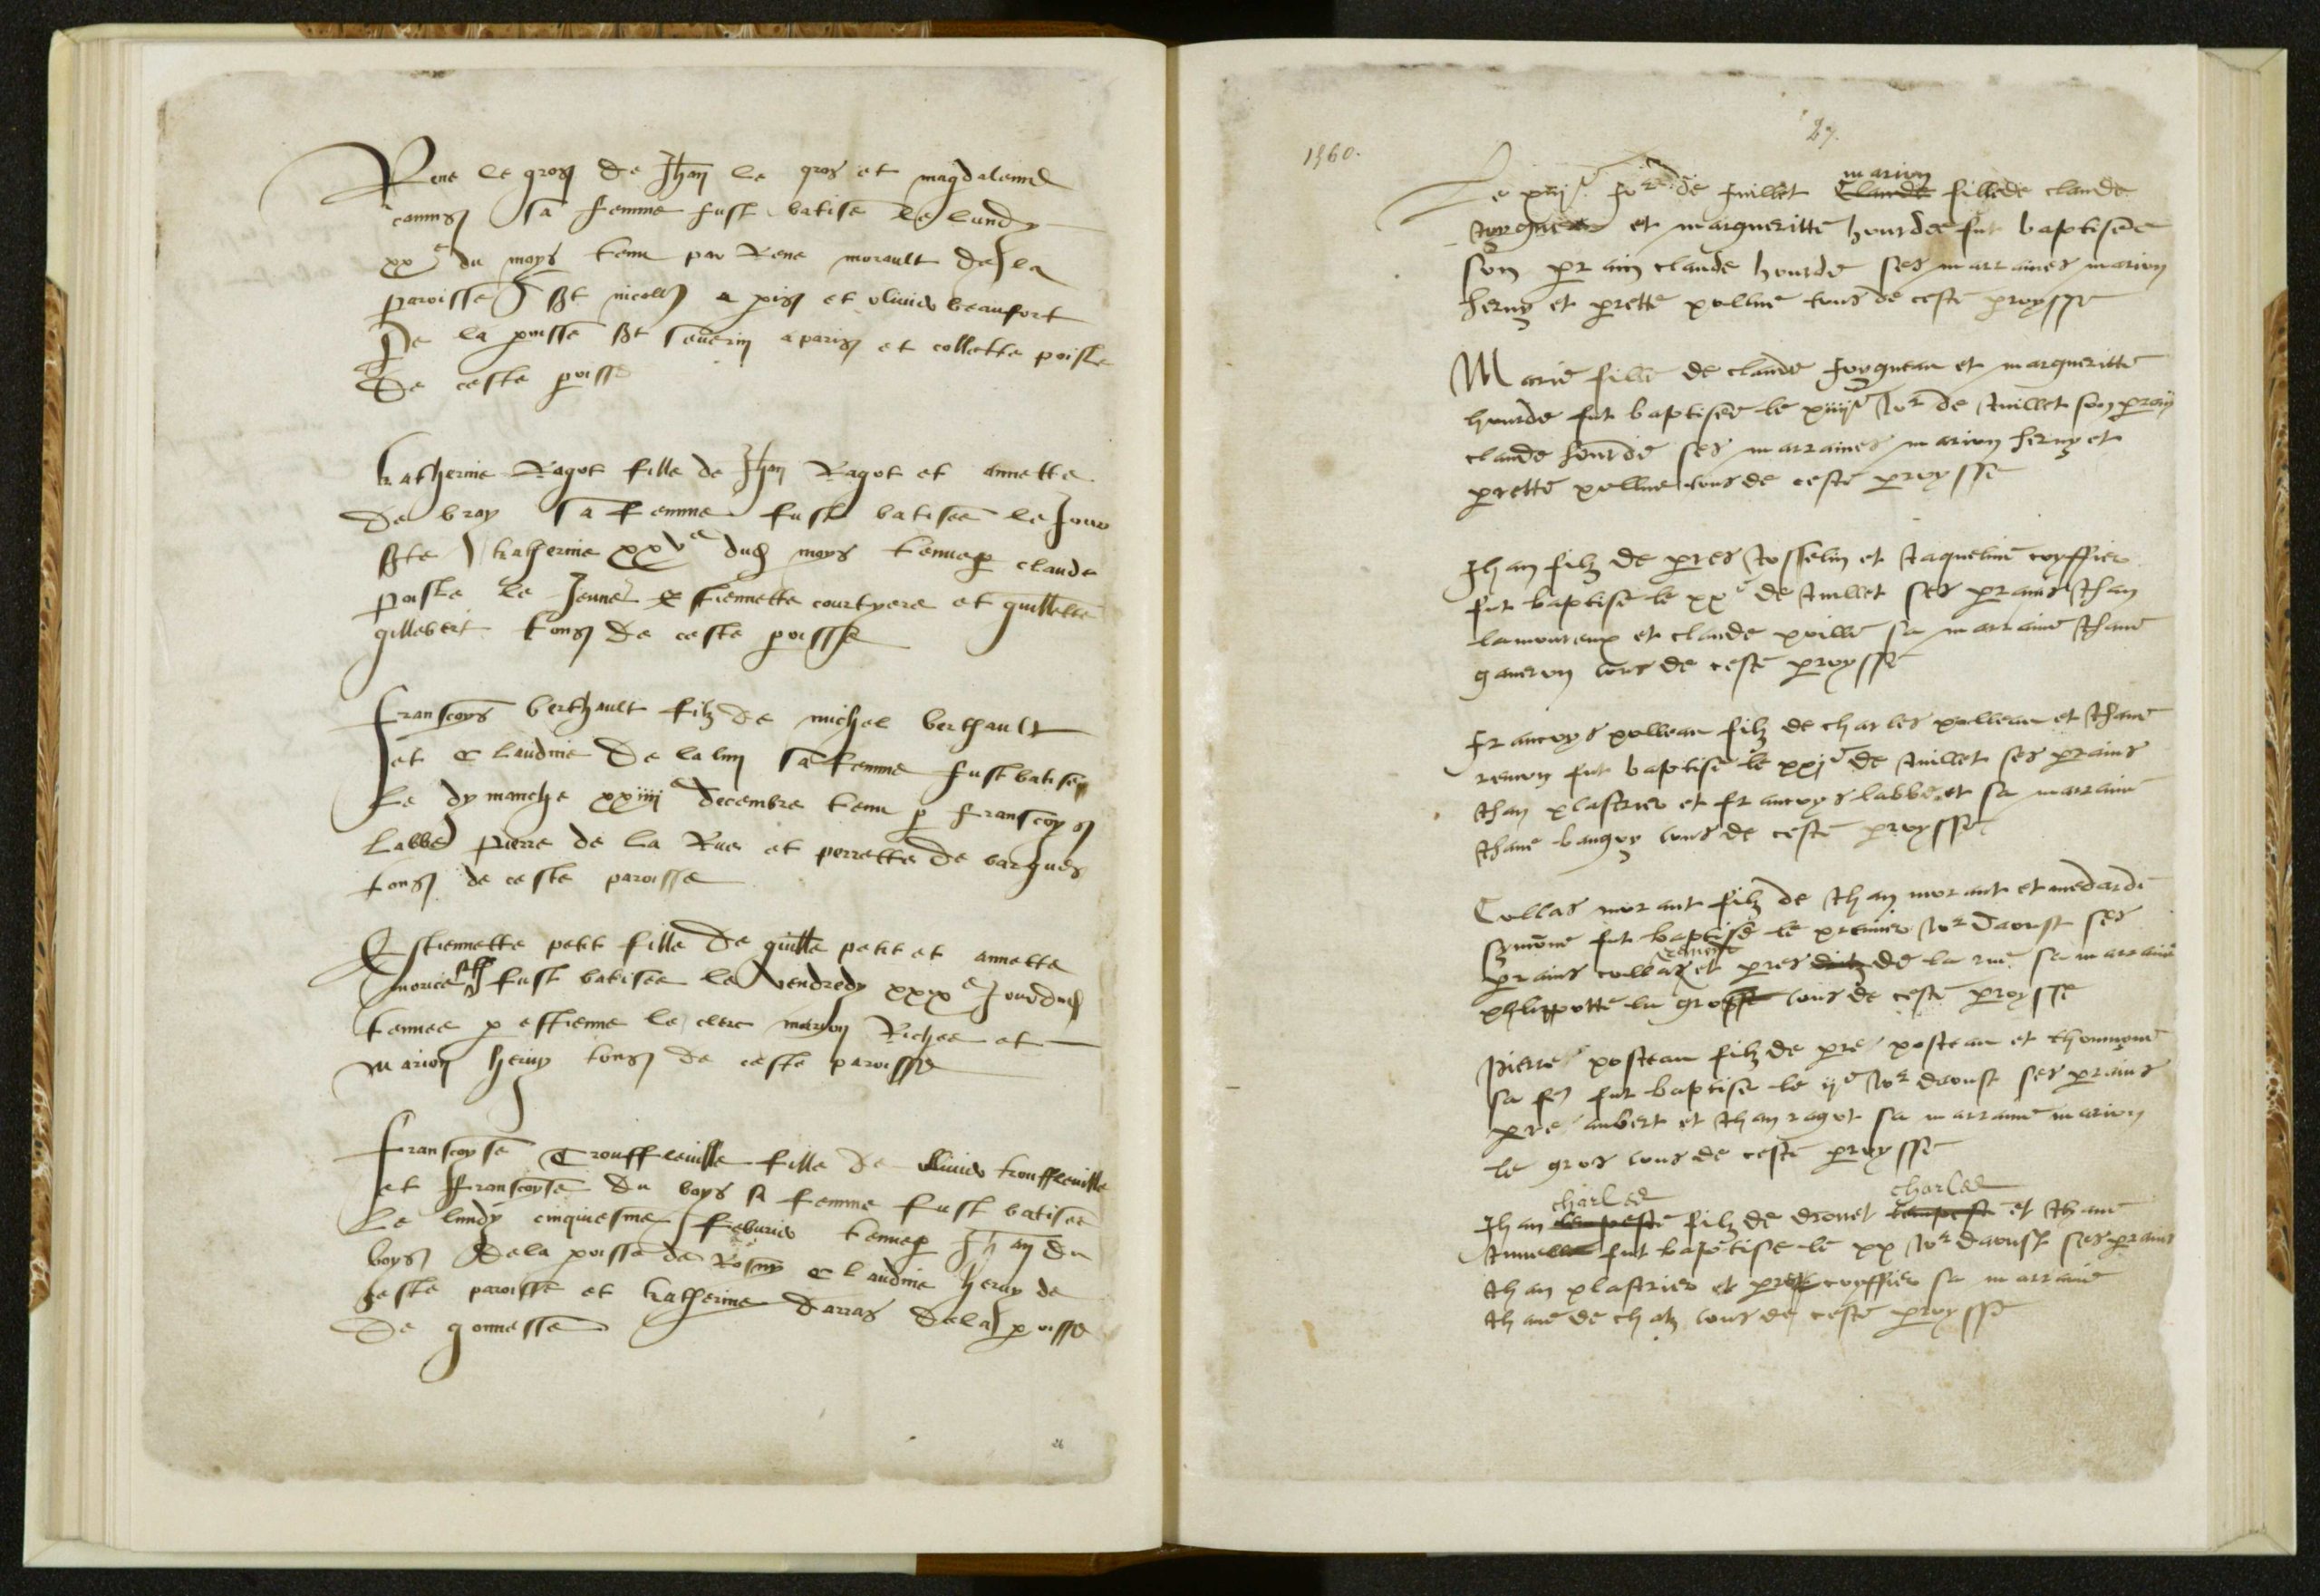 Rene le gros de Jhan le gros et magdaleine
sa femme fust batise le lundy
xx e du moys tenu par Rene morault de la
paroisse St nicolas a et olivier beaufort
De la poisse St severin a paris et collette poisle
De ceste poisse
Katherine Ragot fille de Jhan Ragot et annette
De bray sa femme fust batisee le Jour
Ste katherine xxv e dud moys tenue p claude
poisle le Jeune estiennette courtyere et guillette
gillebert tous de ceste poisse
franscoys berthault filz de michel berthault
et claudine De la sa femme fust batise
Le dymanche xxiiii e decembre tenu p franscoys
labbe pierre de la Rue et perrette De bargues
tous de ceste paroisse
Estiennette petit fille De guille petit et annette
morice sa f fust batisee le vendredy xxix e Jour dud
tenuee p estienne le clerc marion Richee et
marion heruy tous de ceste paroisse
franscoyse Trouffleuille fille de olivier trouffleuille
et franscoyse du boys sa femme fust batisee
Le lundy cinquiesme feburier tenue p Jhan du
boys De la poisse de Rosny claudine heruy de
ceste paroisse et katherine Darras De la poisse
De gonnesse
27.
1560.
Le jor de Juillet marion Claude fille de claude
et margueritte hourde fut baptisee
son parain claude hourde ses marraines marion
heruy et prette pollue tous de ceste proysse
Marie fille de claude Joygneau et margueritte
hourde fut baptisee le xiiii e Jor de Juillet son parain
claude hourde ses marraines marion heruy et
prette pollue tous de ceste proysse
Jhan filz de pres Josselin et Jaqueline coyffier
fut baptise le xx e de Juillet ses parains Jhan
lamoureux et claude poille sa marraine Jhane
gaueron tous de ceste proysse
Francoys polleau filz de charles polleau et Jhane
remon fut baptise le xxj e de Juillet ses parains
Jhan plastrier et francoys labbe et sa marraine
Jhane banguy tous de ceste proysse
Collas morant filz de Jhan morant et medarde
symone fut baptise le premier Jor daoust ses
parains collas et pres de la rue sa marraine
phlippotte la grosse tous de ceste proysse
Pierre posteau filz de pre posteau et thomyne
sa f fut baptise le ij e Jor daoust ses parains
pre aubert et Jhan ragot sa marraine marion
le gros tous de ceste proysse
charles charles
Jhan filz de drouet et Jhane
fut baptise le xx Jor daoust ses parains
Jhan plastrier et pre coyffier sa marraine
Jhane de chatz tous de ceste proysse
26